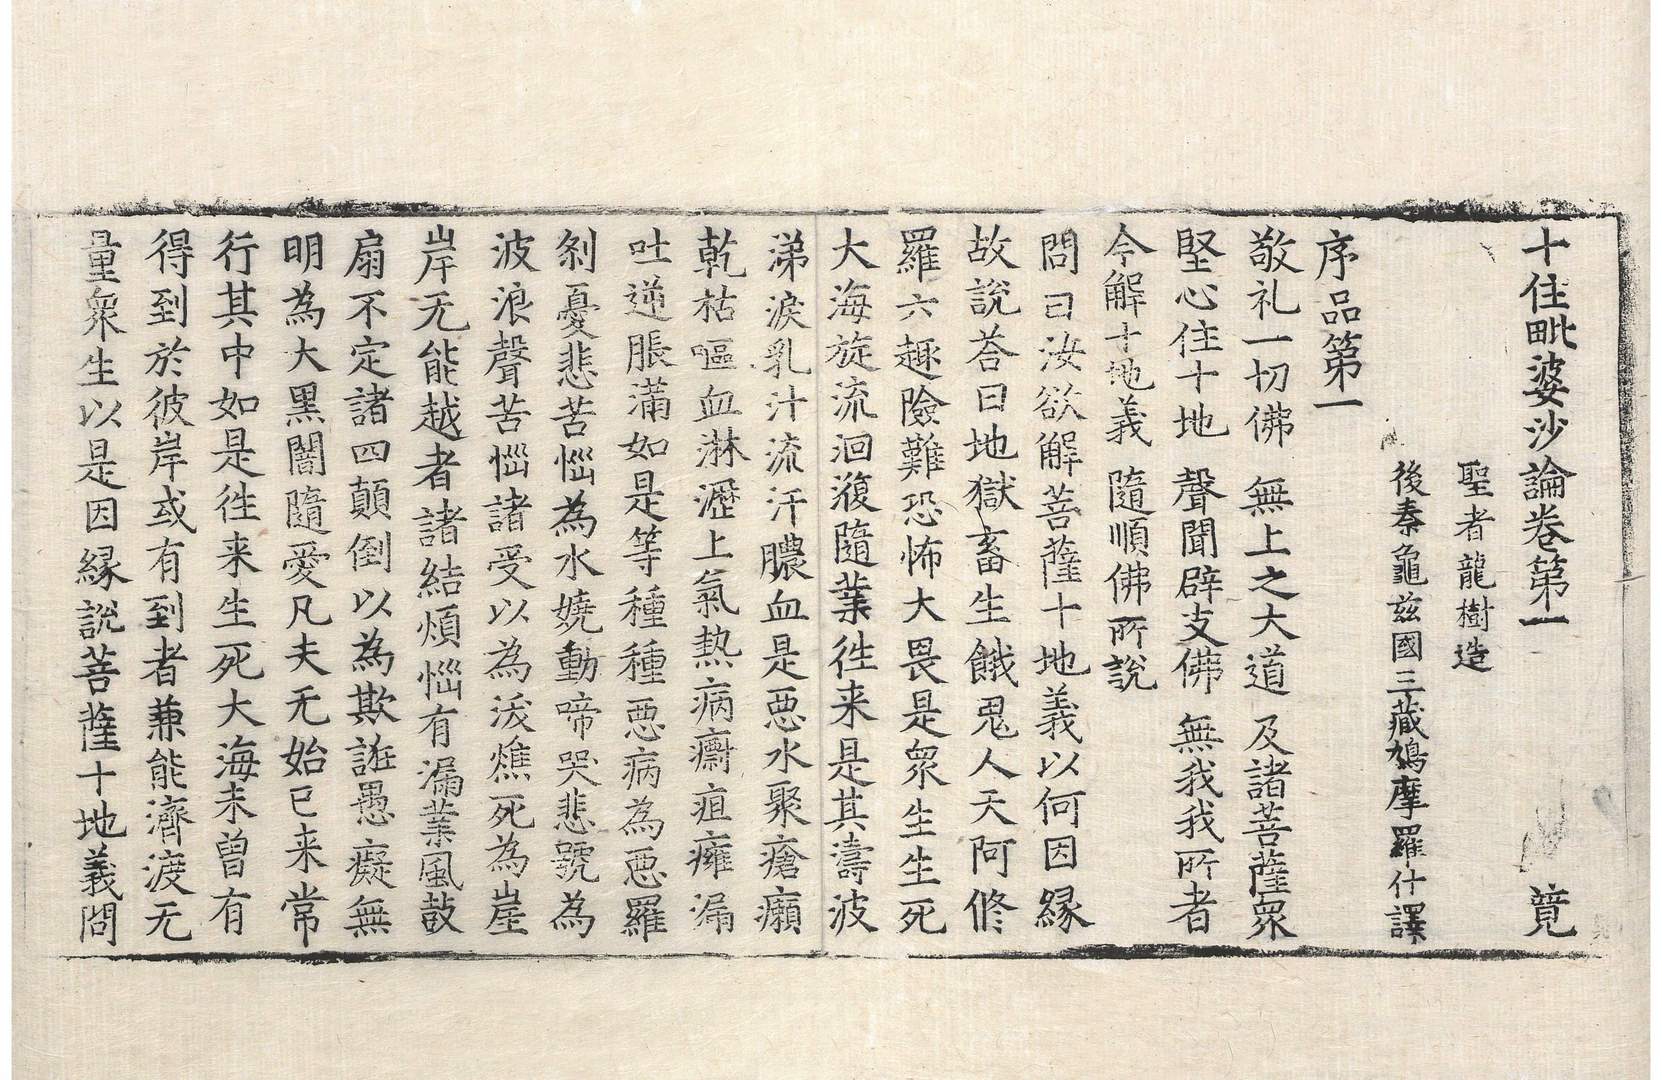 十住毗婆沙論卷第一 竟
聖者龍樹造
後秦龜茲國三藏鳩摩羅什譯
序品第一
敬礼一切佛 無上之大道 及諸菩薩衆
堅心住十地 聲聞辟支佛 無我我所者
今解十地義 隨順佛所說
問曰汝欲解菩薩十地義以何因緣
故說荅曰地獄畜生餓鬼人天阿脩
羅六趣險難恐怖大畏是衆生生死
大海旋流洄澓隨業往来是其濤波
涕淚乳汁流汗膿血是惡水聚瘡癩
乾枯嘔血淋瀝上氣熱病瘭疽癰漏
吐逆脹滿如是等種種惡病為惡羅
刹憂悲苦惱為水嬈動啼哭悲號為
波浪聲苦惱諸受以為沃燋死為崖
岸无能越者諸結煩惱有漏業風鼓
扇不定諸四顛倒以為欺誑愚癡無
明為大黑闇隨愛凡夫无始已来常
行其中如是往来生死大海未曾有
得到於彼岸或有到者兼能濟渡无
量衆生以是因緣說菩薩十地義問